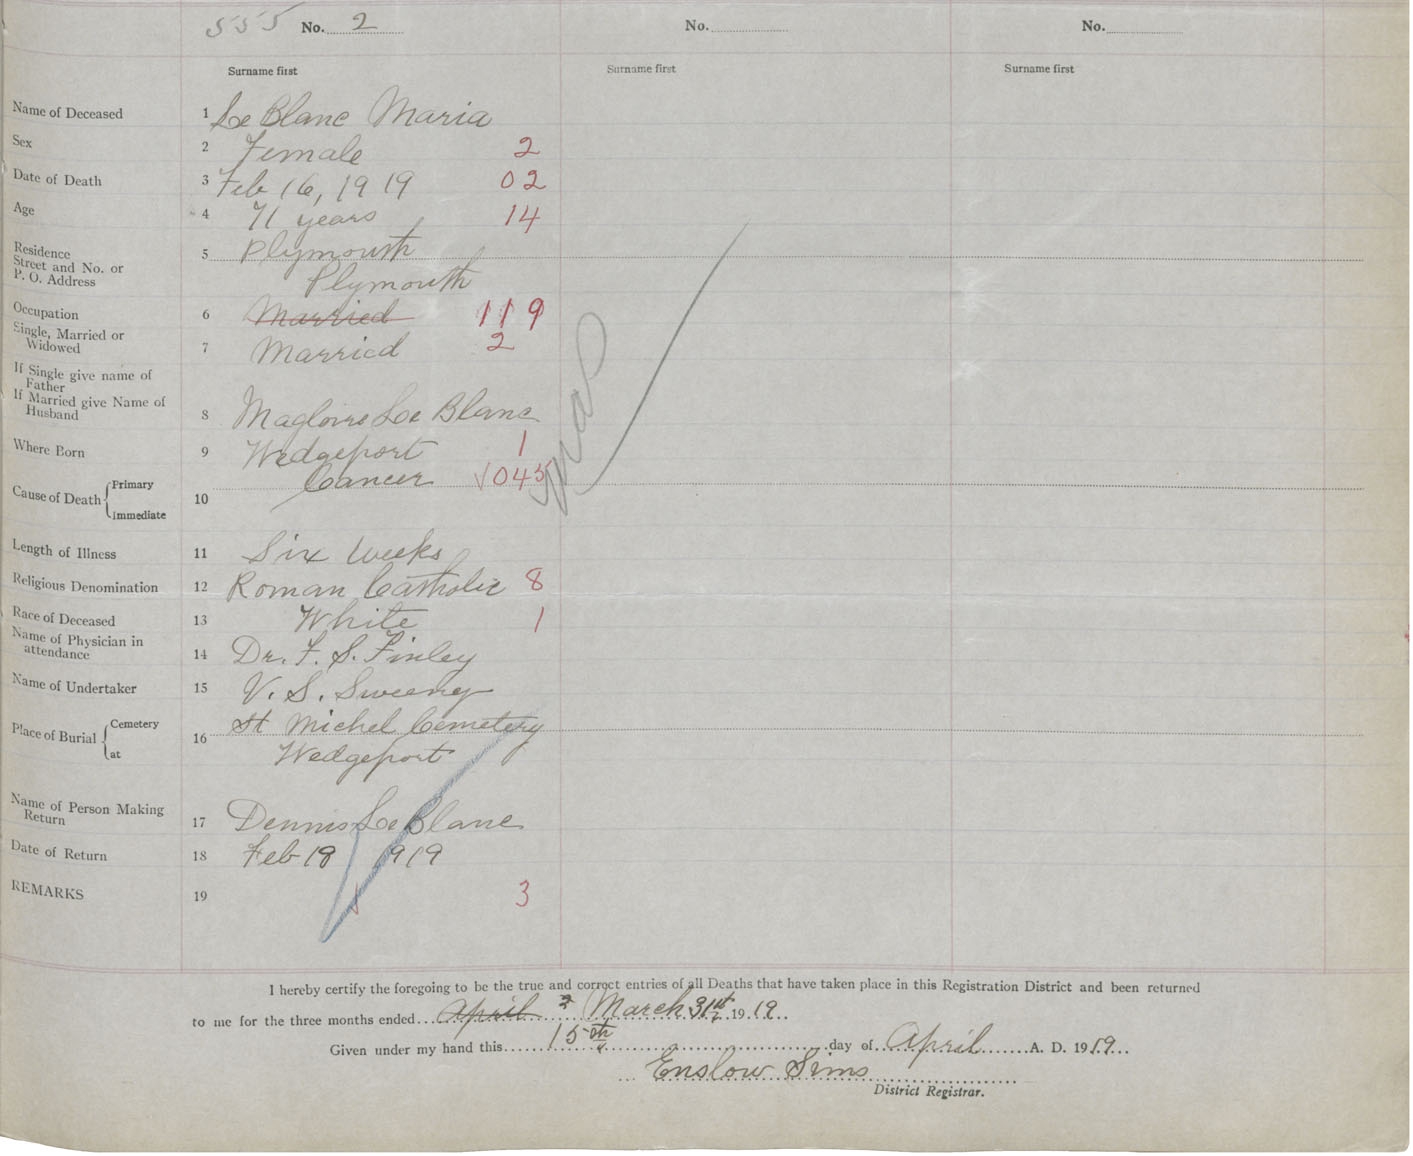 555 No. 2 No. No.
Surname first Surname first Surname first
Name of Deceased 1 Le Blanc Maria
Sex 2 Female 2
Date of Death 3 Feb 16, 1919 02
Age 4 71 years 14
Residence
Street and No. or
P. O. Address
5 Plymouth
Plymouth
Occupation 6 Married 119
Single, Married or
Widowed
7 Married 2
If Single give name of
Father
If Married give Name of
Husband
8 Magloire Le Blanc
Where Born 9 Wedgeport 1
Cause of Death Primary
Immediate
10 Cancer √045
Length of Illness 11 Six weeks
Religious Denomination 12 Roman Catholic 8
Race of Deceased 13 White 1
Name of Physician in
attendance
14 Dr. F. S. Finley
Name of Undertaker 15 V. S. Sweeney
Place of Burial Cemetery
at
16 St Michel Cemetery
Wedgeport
Name of Person Making
Return
17 Dennis Le Blanc
Date of Return 18 Feb 18 1919
REMARKS 19 3
I hereby certify the foregoing to be the true and correct entries of all Deaths that have taken place in this Registration District and been returned
to me for the three months ended April March 31st 1919
Given under my hand this 15th day of April A. D. 1919
Enslow Sims
District Registrar.